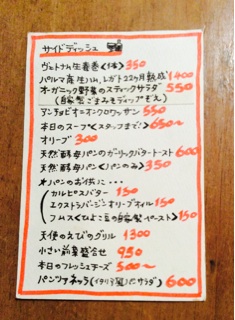 サイドディッシュ
ヴェトナム生春巻〈1本〉 350
パルマ産生ハム、レガト22ヶ月熟成 1400
オーガニック野菜のスティックサラダ 550
(自家製ごまみそディップぞえ)
アンチョビオニオンクロワッサン 550
本日のスープ〈スタッフまで!〉 650〜
オリーブ 300
天然酵母パンのガーリックバタートースト 600
天然酵母パン〈パンのみ〉 350
*パンのお供に・・・
カルピスバター 150
エクストラバージンオリーブオイル 150
フムス〈ひよこ豆の自家製ペースト〉 150
天使のえびのグリル 1300
小さい前菜盛合せ 950
本日のフレッシュチーズ 500〜
パンツァネッラ(イタリア風パンサラダ) 600